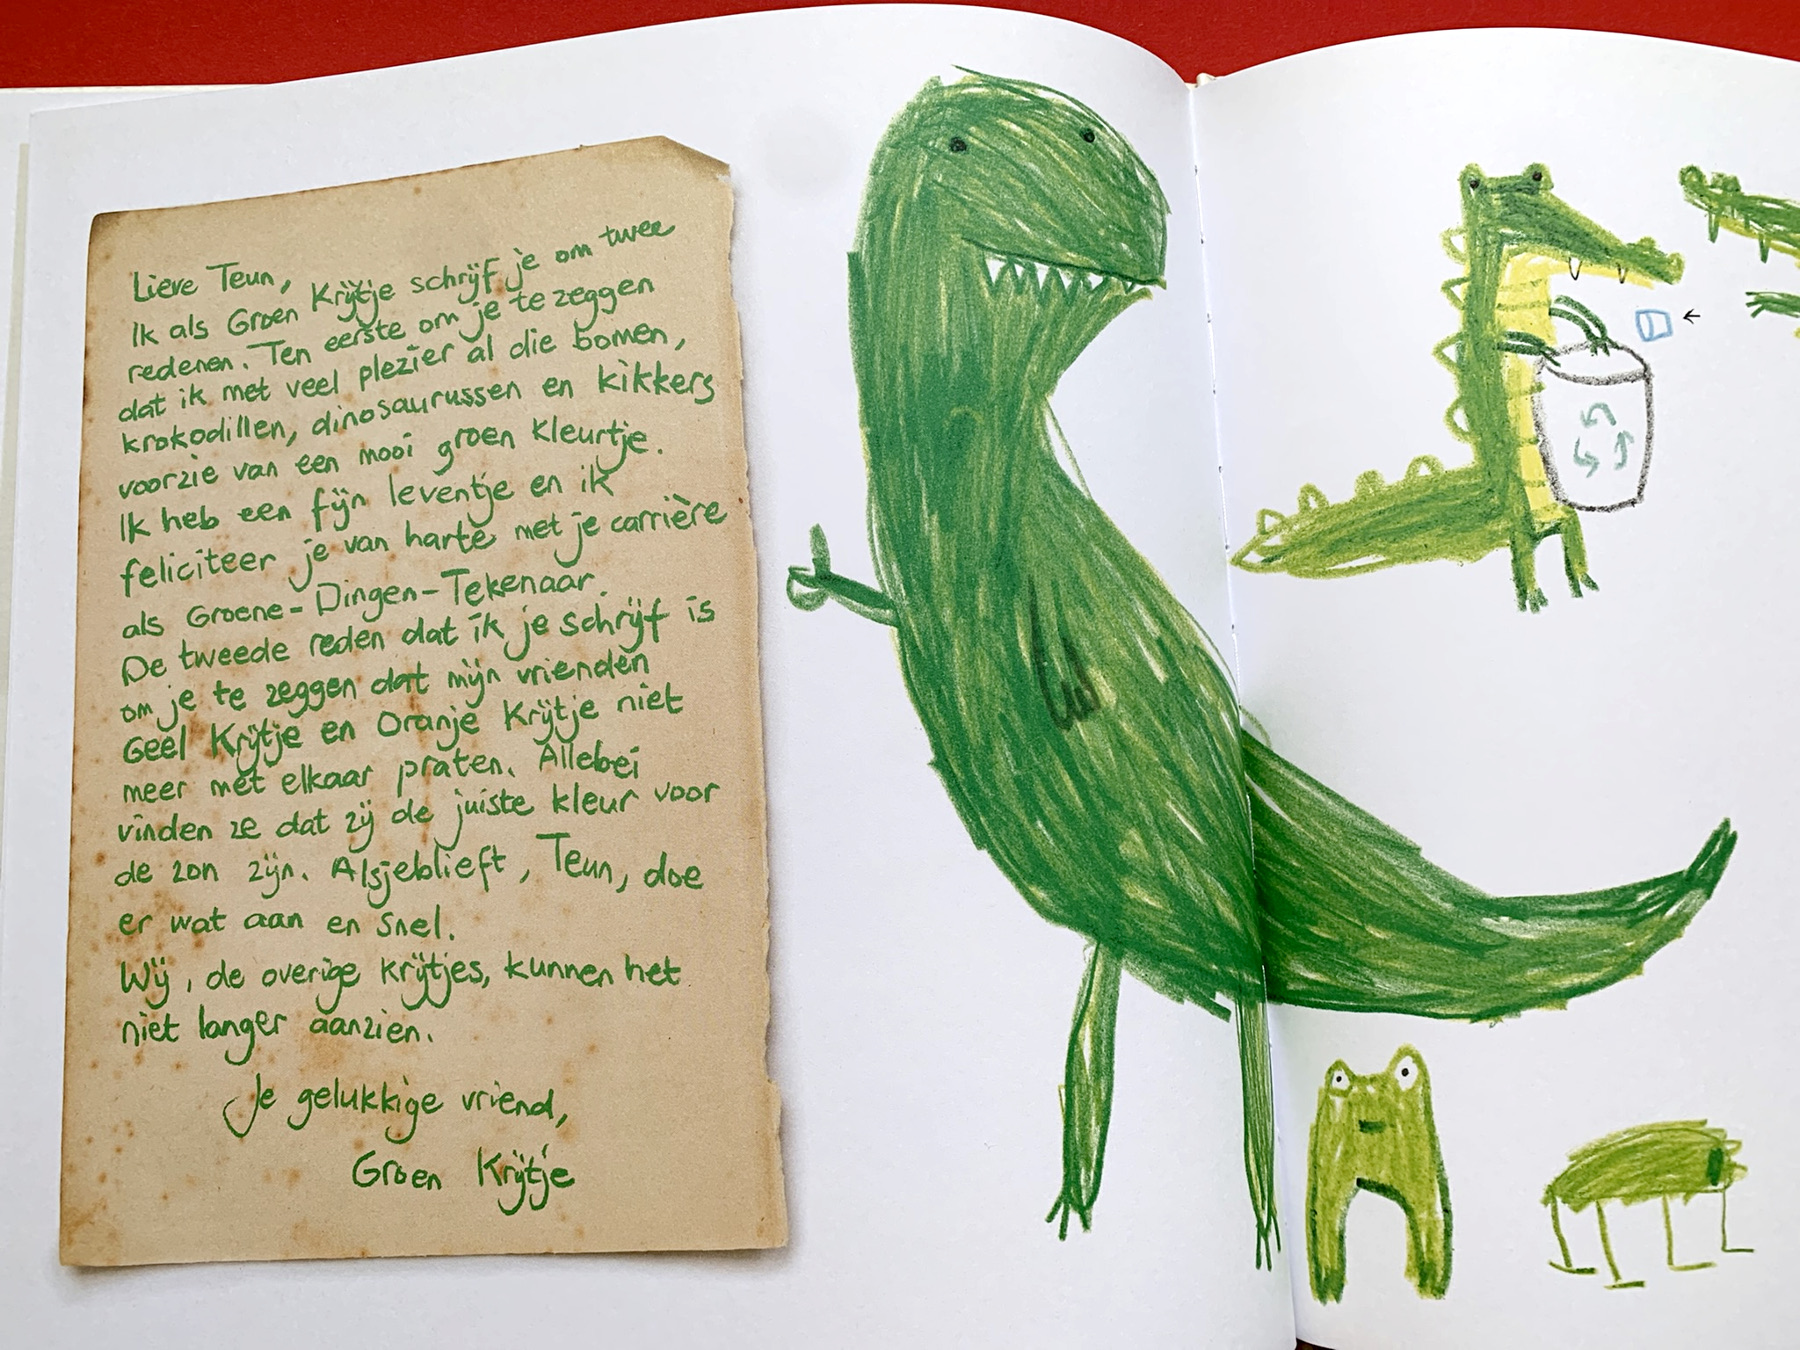 Lieve Teun,
Ik als Groen Krijtje schrijf je om twee
redenen. Ten eerste om je te zeggen
dat ik met veel plezier al die bomen,
krokodillen, dinosaurussen en kikkers
voorzie van een mooi groen kleurtje.
Ik heb een fijn leventje en ik
feliciteer je van harte met je carrière
als Groene-Dingen-Tekenaar.
De tweede reden dat ik je schrijf is
om je te zeggen dat mijn vrienden
Geel Krijtje en Oranje Krijtje niet
meer met elkaar praten. Allebei
vinden ze dat zij de juiste kleur voor
de zon zijn. Alsjeblieft, Teun, doe
er wat aan en snel.
Wij, de overige krijtjes, kunnen het
niet langer aanzien.
Je gelukkige vriend,
Groen Krijtje